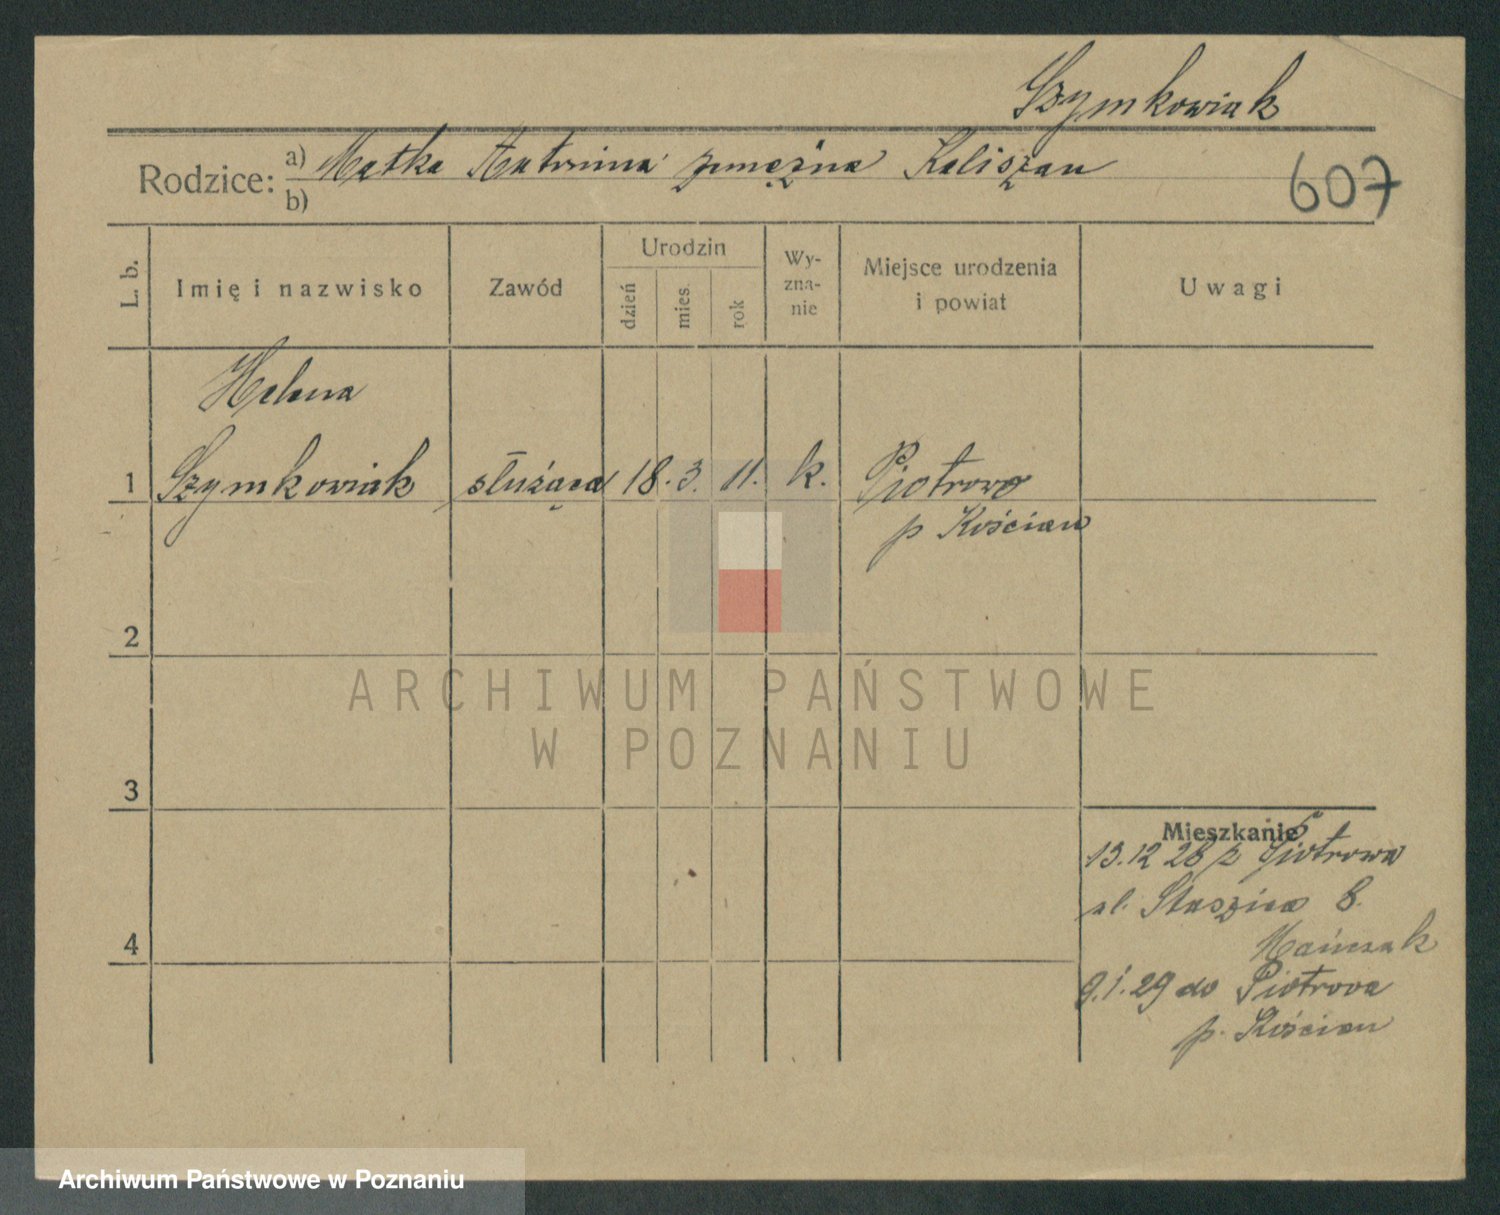 Szymkowiak
Rodzice: a) Matka Antonina zamężna Kaliszan
b)
607
L. b.
Imię i nazwisko
Zawód
Urodzin
dzień
mies.
rok
Wy-
zna-
nie
Miejsce urodzenia
i powiat
Uwagi
Helena
1 Szymkowiak służąca 18. 3. 11. k. Piotrowo
p Kościan
2
ARCHIWUM PAŃSTWOWE
W POZNANIU
3
Mieszkanie
13.12 28 z Piotrowa
ul. Staszica 8.
9.1.29 do Piotrowa
p. Kościan
4
Archiwum Państwowe w Poznaniu